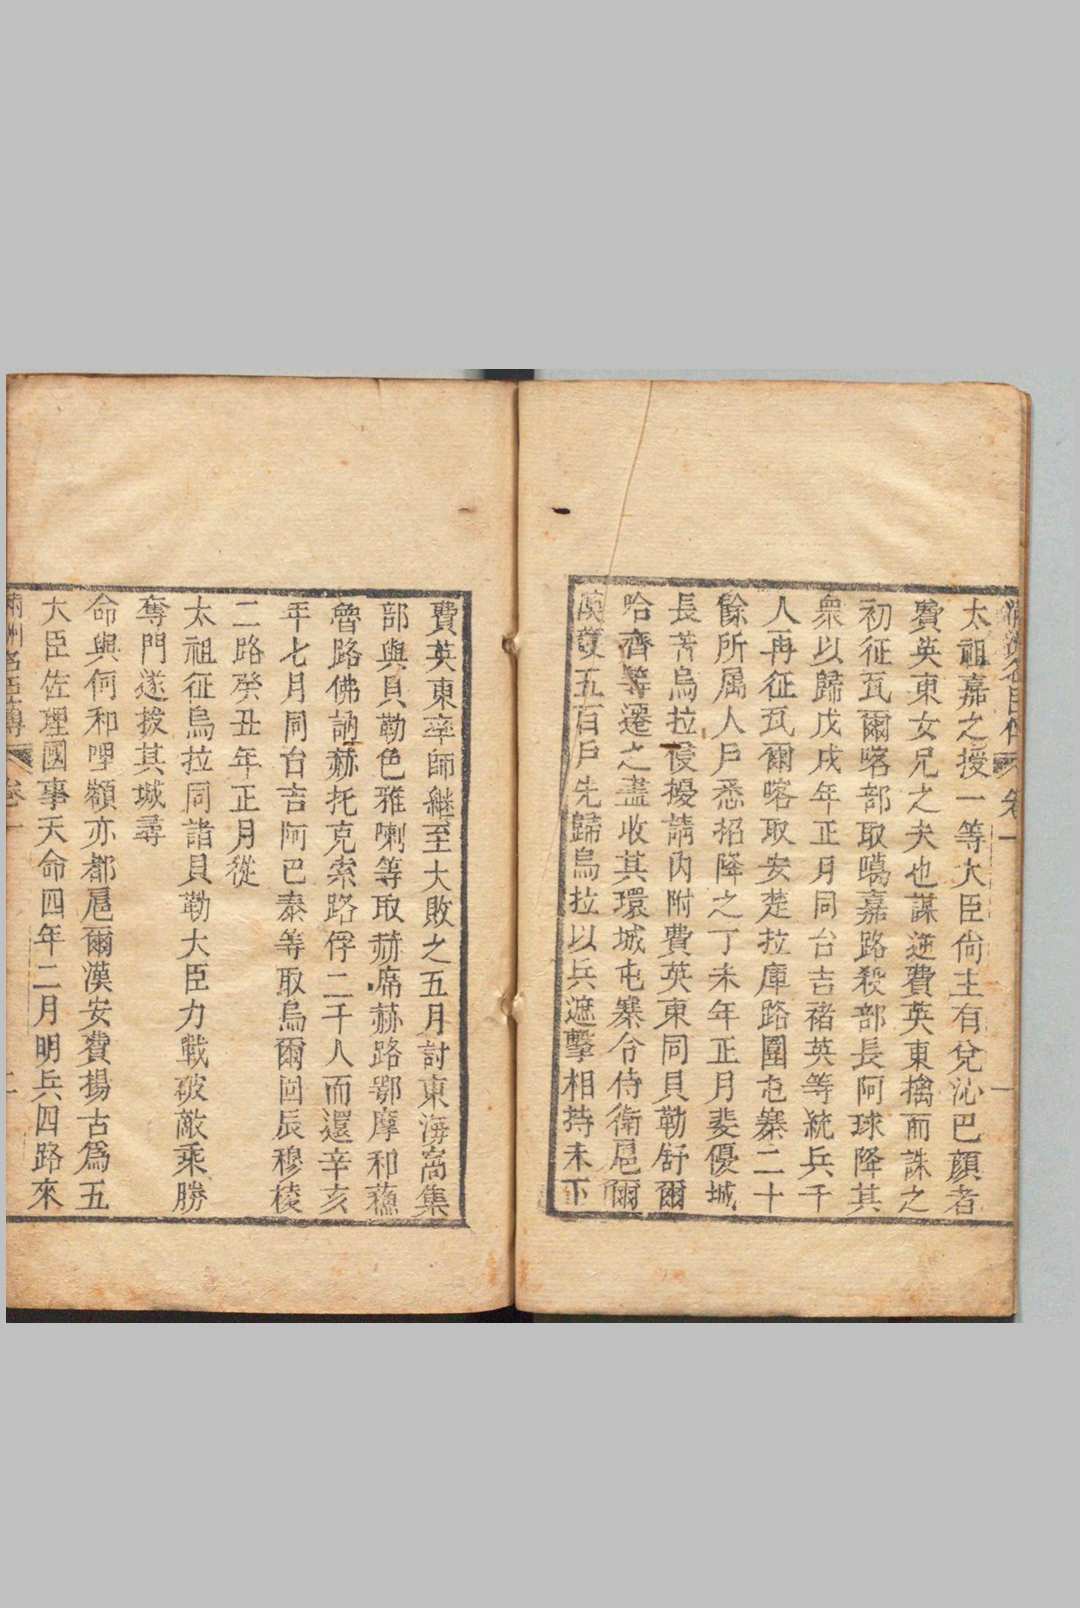 太祖嘉之授一等大臣尙主有兌沁巴顔者
費英東女兄之夫也謀逆費英東擒而誅之
初征瓦爾喀部取噶嘉路殺部長阿球降其
衆以歸戊戌年正月同台吉褚英等統兵千
人再征瓦爾喀取安楚拉庫路圍屯寨二十
餘所属人戶悉招降之丁未年正月斐優城
長苦烏拉侵擾請內附費英東同貝勒舒爾
哈齊等遷之盡收其環城屯寨令侍衛扈爾
漢護五百戶先歸烏拉以兵遮擊相持未下
費英東率師繼至大敗之五月討東海窩集
部與貝勒色雅喇等取赫席赫路鄂摩和蘓
魯路佛訥赫托克索路俘二千人而還辛亥
年七月同台吉阿巴泰等取烏爾囘辰穆棱
二路癸丑年正月從
太祖征烏拉同諸貝勒大臣力戰破敵乘勝
奪門遂拔其城尋
命與何和哩額亦都扈爾漢安費揚古爲五
大臣佐理國事天命四年二月明兵四路來
滿洲名臣傳 卷一 二